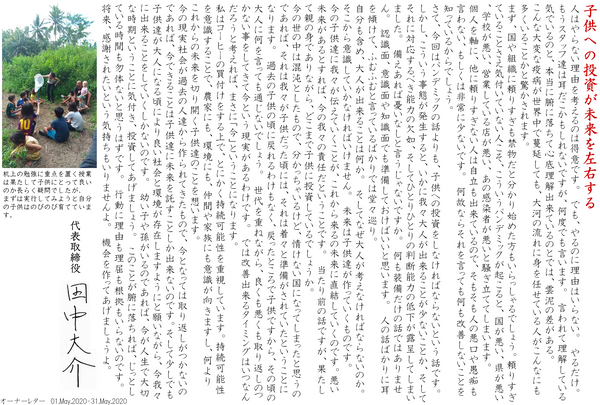 子供への投資が未来を左右する
人はやらない理由を考えるのは得意です。 でも、やるのに理由はいらない。 やるだけ。
もうスタッフ達は耳だこかもしれないですが、何度でも言います。 言われて理解している
気でいるのと、本当に腑に落ちて心底理解出来ているのとでは、雲泥の差がある。
こんな大変な疫病が世界中で蔓延しても、大河の流れに身を任せている人がこんなにも
多くいることかと驚かれます。
まず、国や組織に頼りすぎも禁物だと分かり始めた方もいらっしゃるでしょう。 頼りすぎ
ていることさえ気付いていない人こそ、こういうパンデミックが起こると、国が悪い、県が悪い
学校が悪い、営業している店が悪い、あの感染者が悪いと騒ぎ立ててしまいます。
個人を軸に、他に頼りすぎない人は自立も出来ているので、そもそも人の悪口や愚痴も
言わないし、もしくは非常に少ないです。 何故ならそれを言っても何も改善しないことを
知っているからでしょう。
さて、今回はパンデミックの話よりも、子供への投資をしなければならないという話です。
しかし、こういう事態が発生すると、いかに我々大人が出来ることが少ないことか、そして
それに対応するべき能力の欠如、そしてひとりひとりの判断能力の低下が露呈してしまい
ました。 備えあれば憂いなしと言うじゃないですか。 何も装備だけの話ではありませ
ん。 認識面、意識面や知識面でも準備しておけばいいと思います。 人の話ばかりに耳
を傾けて、ふむふむと言っているばかりでは堂々巡り。
自分も含め、大人が出来ることは何か。 そしてなぜ大人が考えなければならないのか。
そこから意識していかなければいけません。 未来は子供達が作っていくものです。
今の子供達に我々が伝えてゆくことが、これから来る未来に直結していくのです。 悪い
未来があるとすれば、今の我々の責任だということです。 当たり前の話ですが、果たし
て親の身でありながら、どこまで子供に投資しているでしょうか。
今の世の中は混沌としたもので、分かっちゃいるけど、情けない国になってしまったと思うの
であれば、それは我々が子供だった頃に、それは着々と準備がされていたということに
なります。 過去の子供の頃に戻れるわけもなく、戻ったところで子供ですから、その頃の
大人に何を言っても通じないでしょう。 世代を重ねながら、良くも悪くも取り返しのつ
かない事をしてきて今という現実があるわけです。 では改善出来るタイミングはいつなん
だろうと考えれば、まさに「今」ということになります。
私はコーヒーの買付をする上で、とにかく持続可能性を重視しています。 持続可能性
を意識することで、農家にも、環境にも、仲間や家族にも意識が向きますし、何より
これからの未来を切り開く子供達にも意識することと思います。
今の現実社会が過去の大人達から作られてきたもので、今となっては取り返しがつかないの
であれば、今できることは子供達に未来を託すことしか出来ないのです。 そして少しでも
子供達が大人になる頃により良い社会と環境が存在しますようにと願いながら、今我々
に出来ることをしていくしかないのです。 幼い子や孫がいるのであれば、今が人生で大切
な時期ということに気付き、投資してあげましょう。 このことが腑に落ちれば、じっとし
ている時間も勿体ないと思うはずです。 行動に理由も理屈も根拠もいらないのです。
将来、感謝されたいという気持ちもいりませんよ。 機会を作ってあげましょうよ。
机上の勉強に重点を置く授業
は果たして子供にとって良い
のか長らく疑問でしたが、
まずは実行してみようと自分
の子供はのびのび育てていま
す。
代表取締役
田中大介
オーナーレター 01.May.2020-31.May.2020